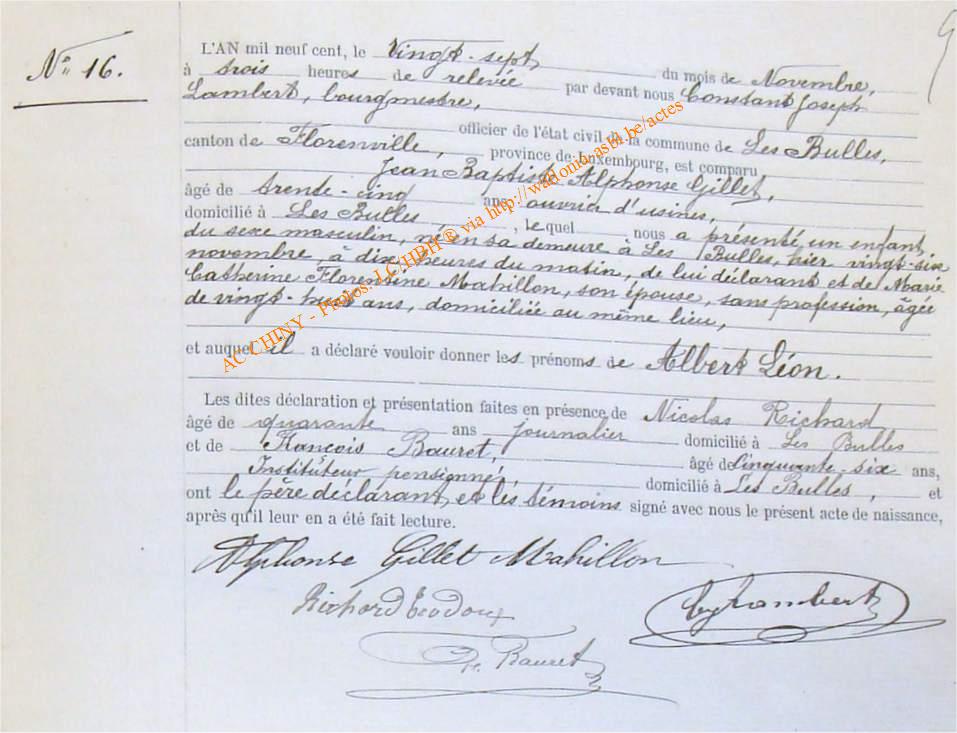 N° 16.
L'AN mil neuf cent, le vingt-sept du mois de Novembre,
à trois heures de relevée par devant nous Constant Joseph
Lambert, bourgmestre,
officier de l'état civil de la commune de Les Bulles,
canton de Florenville, province de Luxembourg, est comparu
Jean Baptiste Alphonse Gillet,
âgé de trente-cinq ans ouvrier d'usines,
domicilié à Les Bulles, lequel nous a présenté un enfant
du sexe masculin, né en sa demeure à Les Bulles, hier vingt-six
novembre, à dix heures du matin, de lui déclarant et de Marie
Catherine Florentine Mahillon, son épouse, sans profession, âgée
de vingt-huit ans, domiciliée au même lieu,
et auquel il a déclaré vouloir donner les prénoms de Albert Léon.
Les dites déclaration et présentation faites en présence de Nicolas Richard
âgé de quarante ans journalier domicilié à Les Bulles
et de François Bauret, âgé de Cinquante-six ans,
Instituteur pensionné, domicilié à Les Bulles, et
ont le père déclarant, et les témoins signé avec nous le présent acte de naissance,
après qu'il leur en a été fait lecture.
Alphonse Gillet Mahillon
Richard
Lambert
Fr. Bauret
AC CHINY - Photos: J.C.HBH © via http://wallonia.asbl.be/actes